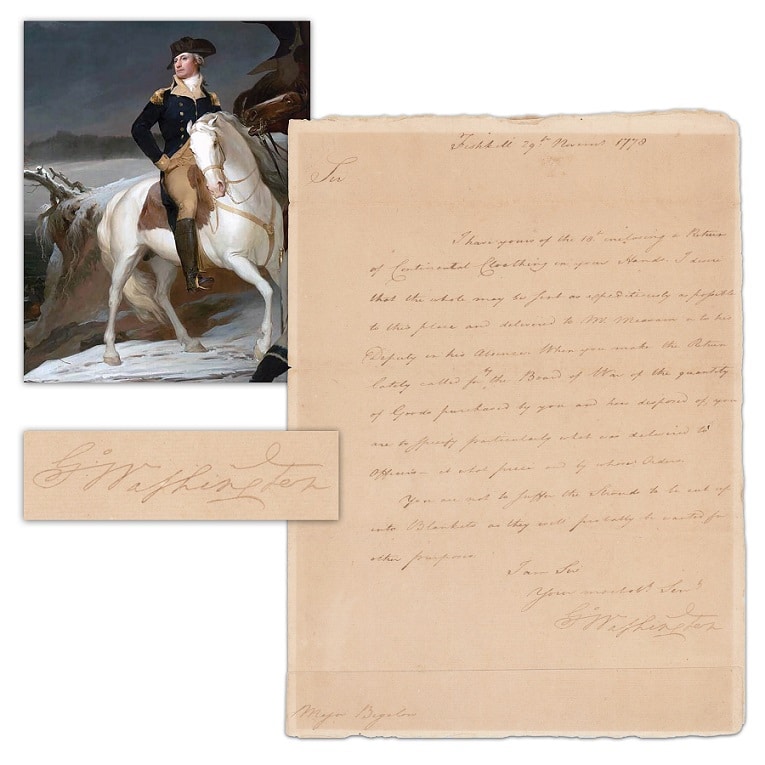 Fishkill 29th Novemr 1778
Sir
I have yours of the 18th inclosing a Return
of Continental Cloathing in your Hands. I desire
that the whole may be sent as expeditiously as possible
to this place and delivered to Mr Measam or to his
Deputy in his Absence. When you make the Return
lately called for by the Board of War of the quantity
of Goods purchased by you and how disposed of you
are to specify particularly what was delivered to
Officers at what price and by whose Orders.
You are not to suffer the Strouds to be cut up
into Blankets as they will probably be wanted for
other purposes
I am Sir
Your most obt Servt
Go Washington
Major Bigelow
Go Washington